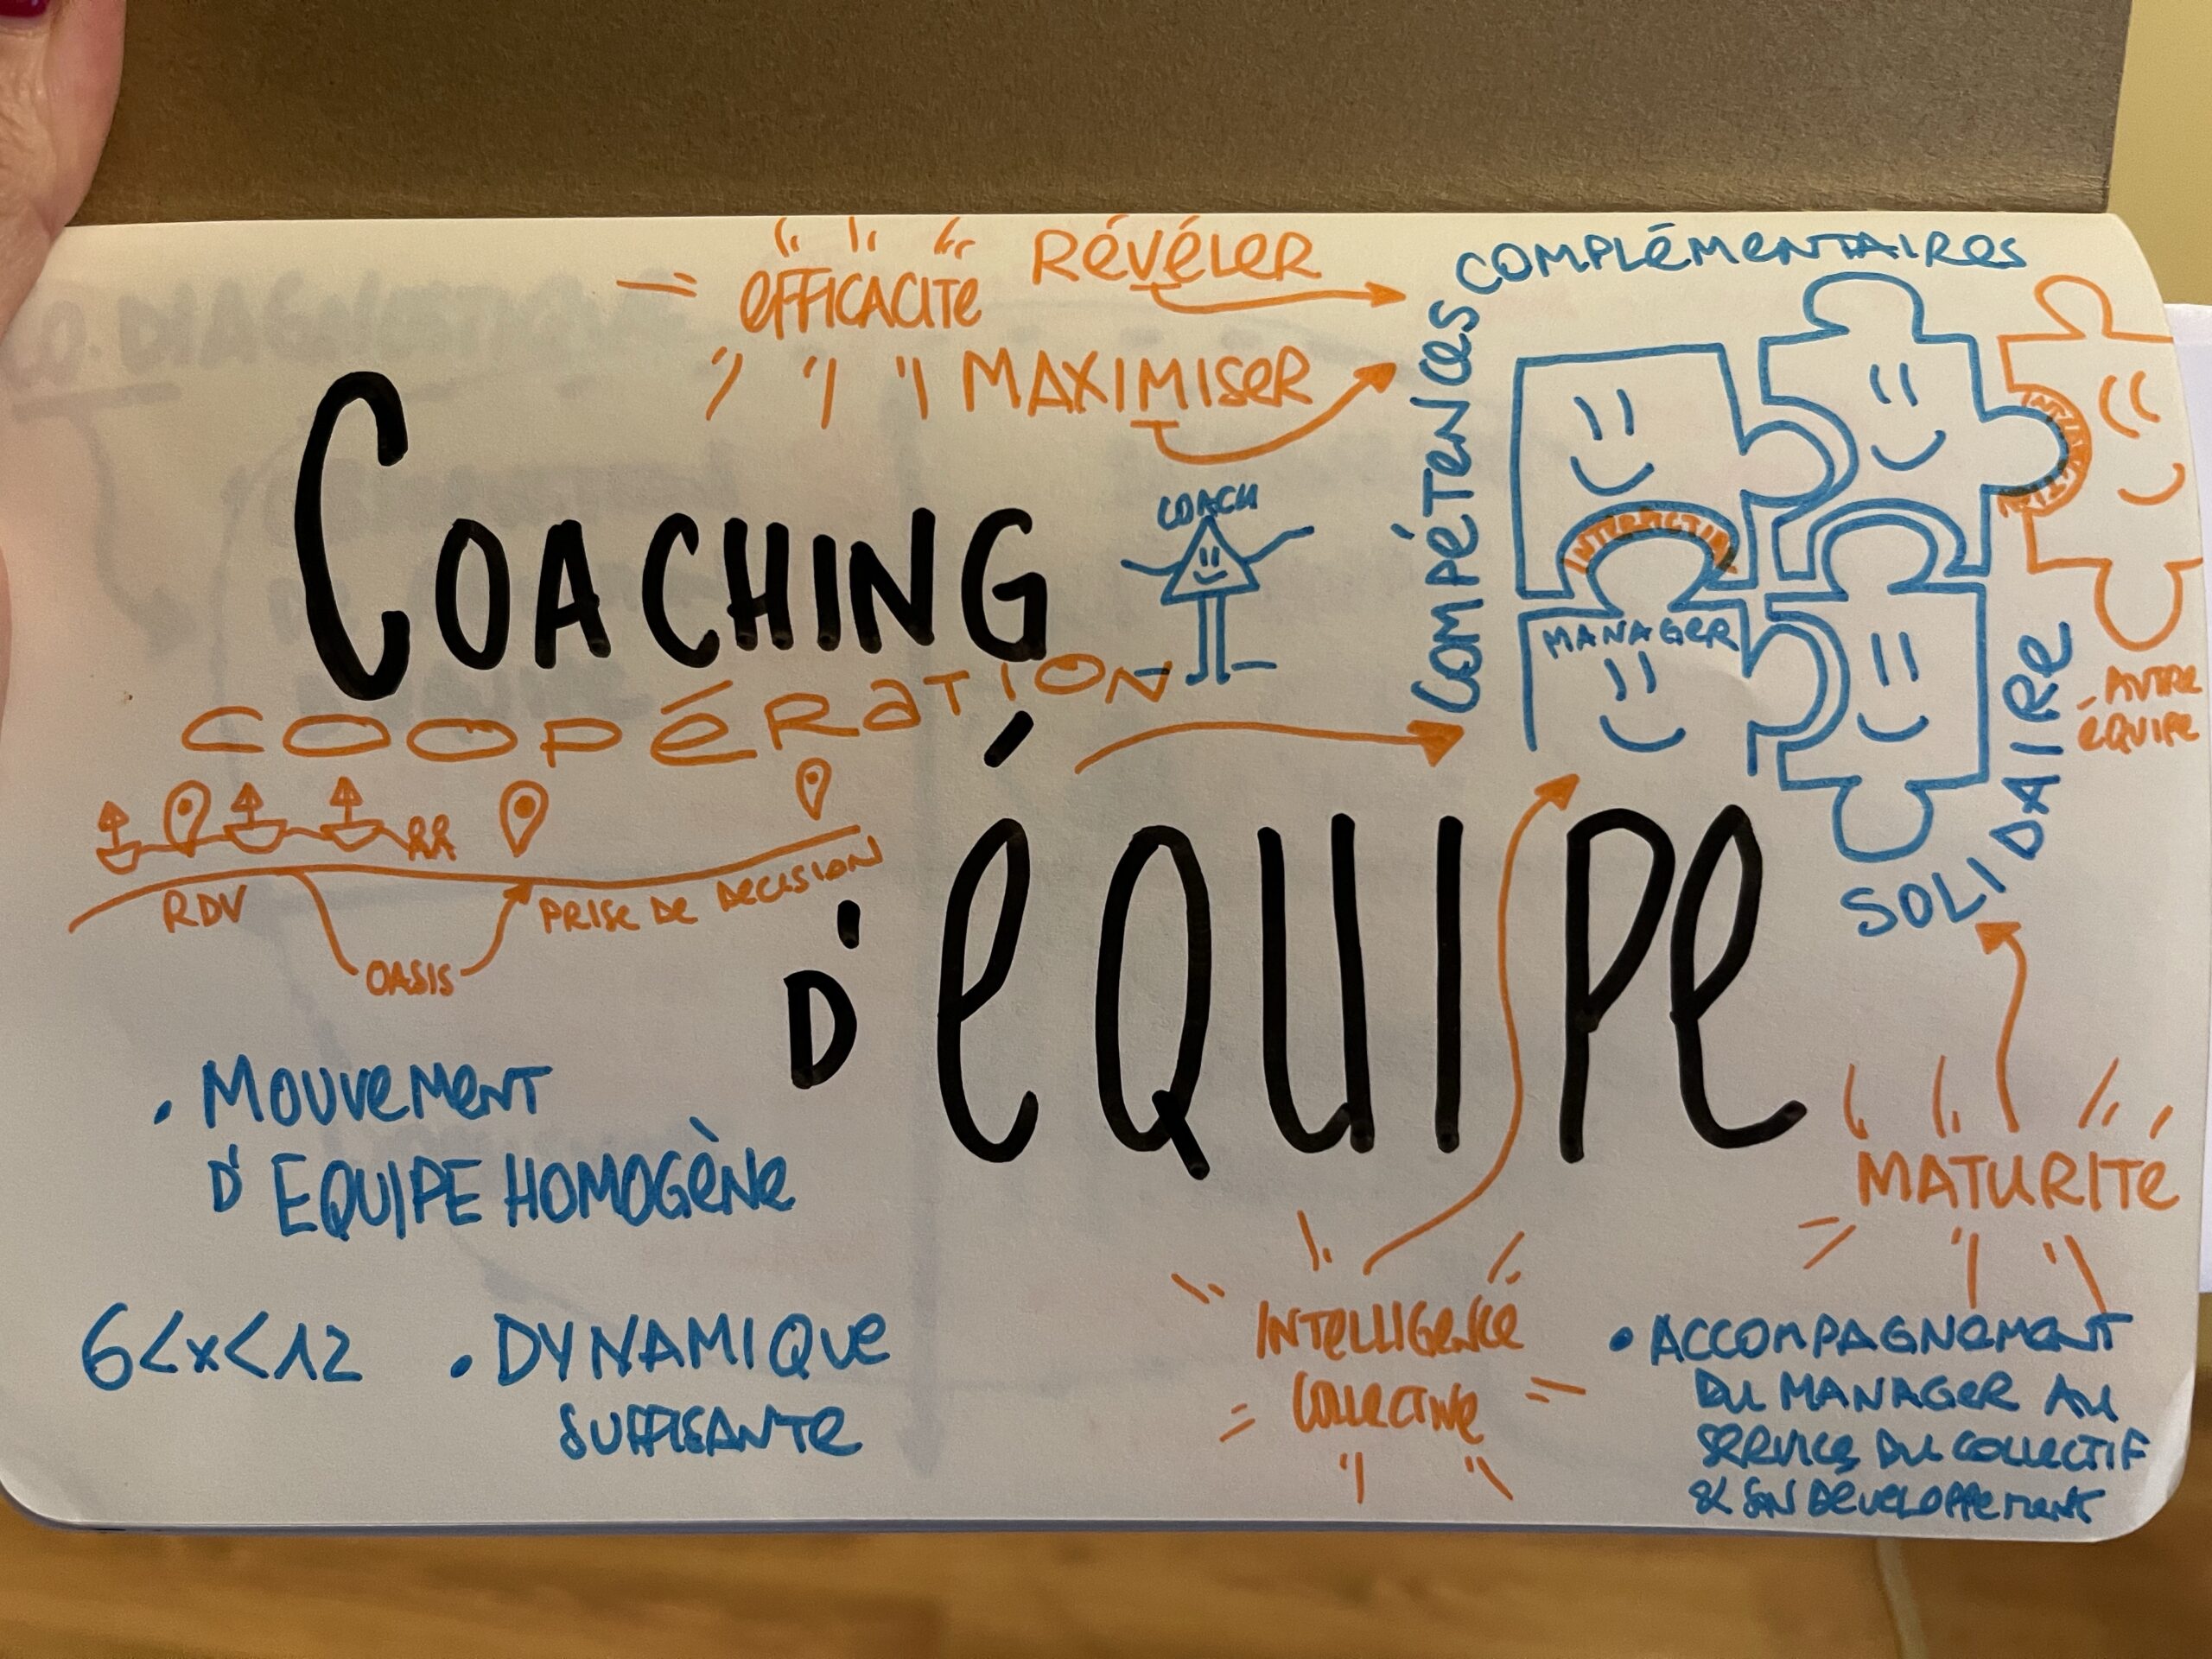 EFFICACITE
RÉVÉLER
MAXIMISER
COMPÉTENCES
COMPLÉMENTAIRES
COACHING
COACH
INTERACTION
MANAGER
AUTRE
ÉQUIPE
SOLIDAIRE
COOPÉRATION
RDV
OASIS
PRISE DE DECISION
D'ÉQUIPE
. MOUVEMENT
D'EQUIPE HOMOGÈNE
6<x<12
. DYNAMIQUE
SUFFISANTE
INTELLIGENCE
COLLECTIVE
MATURITÉ
• ACCOMPAGNEMENT
DU MANAGER AU
SERVICE DU COLLECTIF
& SON DÉVELOPPEMENT